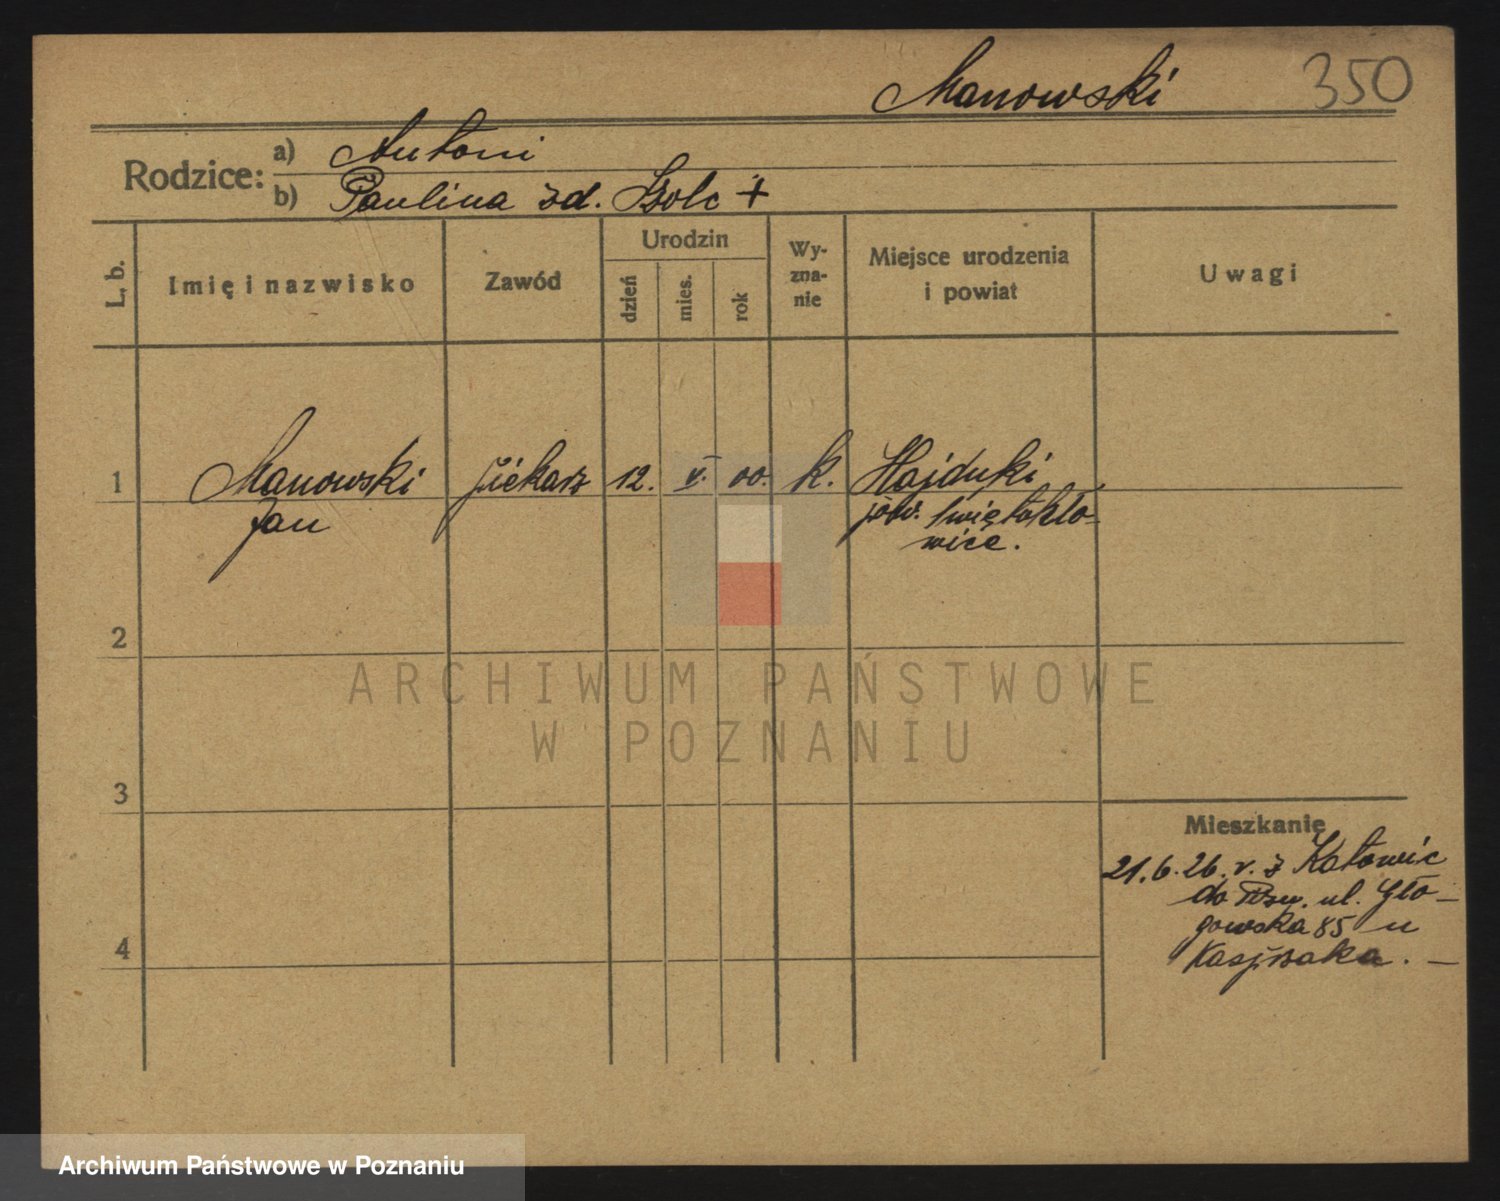 Manowski 350
Rodzice: a) Antoni
b) Paulina zd. Szolc +
L. b.
Imię i nazwisko
Zawód
Urodzin
dzień
mies.
rok
Wy-
zna-
nie
Miejsce urodzenia
i powiat
Uwagi
1 Manowski piekarz 12. V. 00. k. Hajduki
Jan pow. Świętochło-
wice.
2
3
Mieszkanie
21.6.26. v. z Katowic
do Pozn. ul. Gło-
gowska 85 u
Kasprzaka. -
4
ARCHIWUM PAŃSTWOWE
W POZNANIU
Archiwum Państwowe w Poznaniu